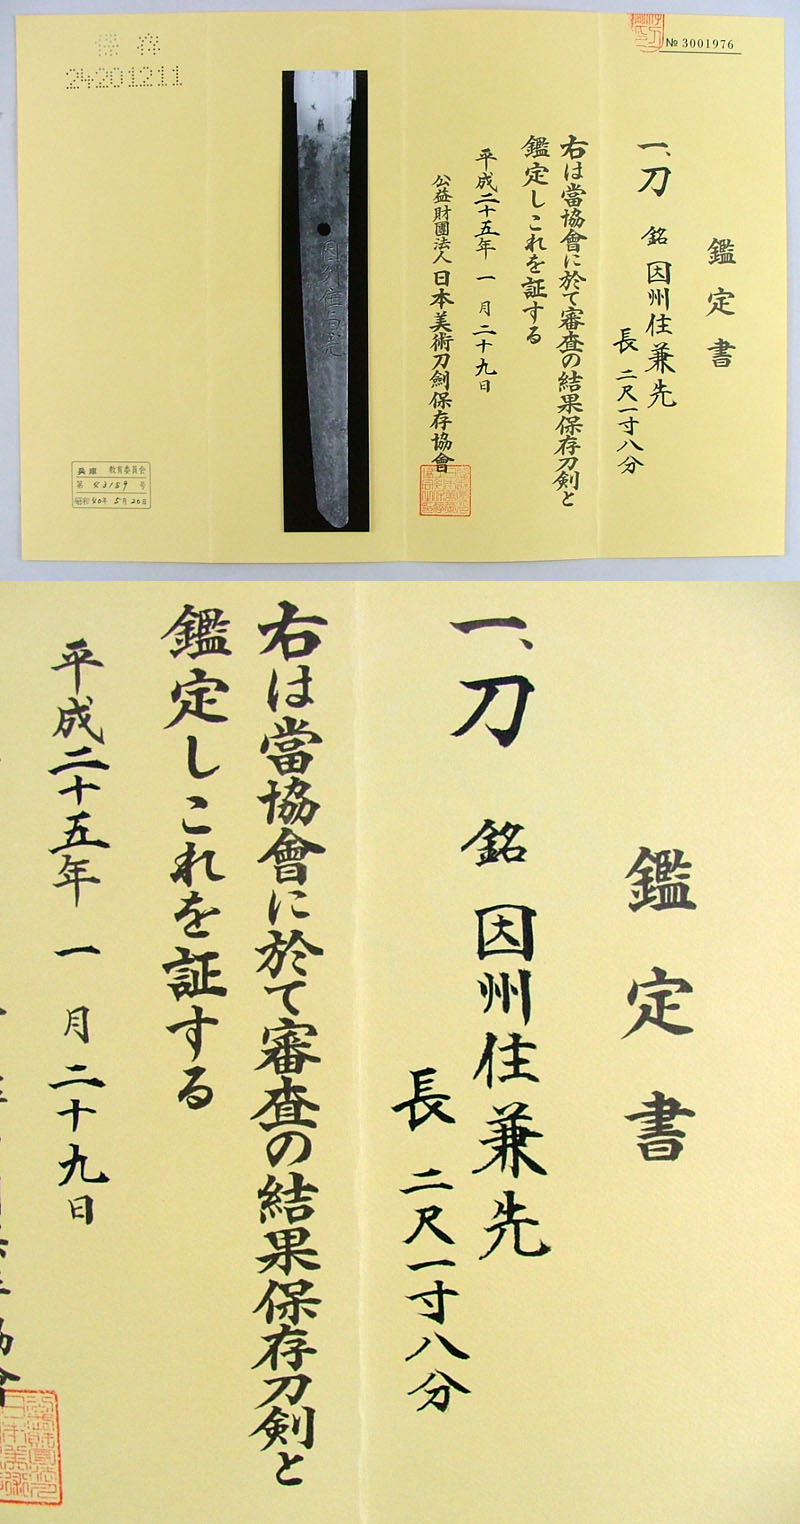 № 3001976
鑑定書
一、刀 銘 因州住兼先
長 二尺一寸八分
右は當協會に於て審査の結果保存刀剣と
鑑定しこれを証する
平成二十五年 一 月 二十九日
公益財團法人 日本美術刀劍保存協會
因州住兼先
保存
24201211
兵庫 教育委員会
第 号
昭和40年 5月20日
鑑定書
一、刀 銘 因州住兼先
長 二尺一寸八分
右は當協會に於て審査の結果保存刀剣と
鑑定しこれを証する
平成二十五年 一 月 二十九日